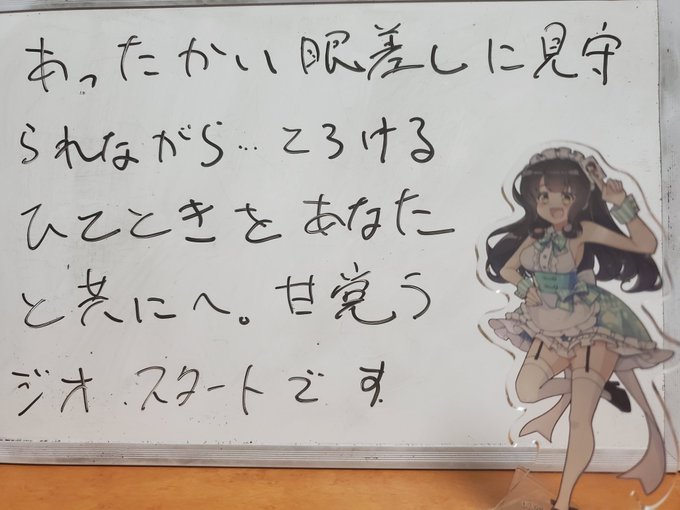 あったかい眼差しに見守
られながら…ころける
ひとときをあなた
と共にへ。甘覚ラ
ジオ.スタートです